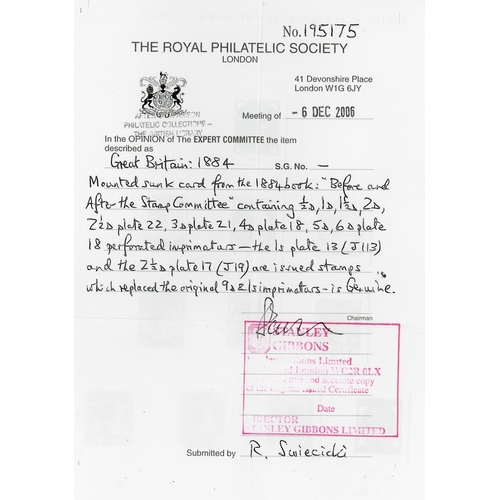 No. 195175
THE ROYAL PHILATELIC SOCIETY
LONDON
41 Devonshire Place
London W1G 6JY
PHILATELIC COLLECTIONS
THE BRITISH LIBRARY
Meeting of - 6 DEC 2006
In the OPINION of The EXPERT COMMITTEE the item
described as
Great Britain: 1884 S.G. No. –
Mounted sunk card from the 1884 book: "Before and
After the Stamp Committee" containing ½D, 1D, 1½D, 2D,
2½D plate 22, 3D plate 21, 4D plate 18, 5D, 6D plate
18 perforated imprimaturs – the 1s plate 13 (J113)
and the 2½D plate 17 (J19) are issued stamps
which replaced the original 9D & 1s imprimaturs – is Genuine.
Chairman
STANLEY
GIBBONS
Gibbons Limited
London WC2R 0LX
and accurate copy
of the issued Certificate
Date
DIRECTOR
STANLEY GIBBONS LIMITED
Submitted by R. Swiecicki